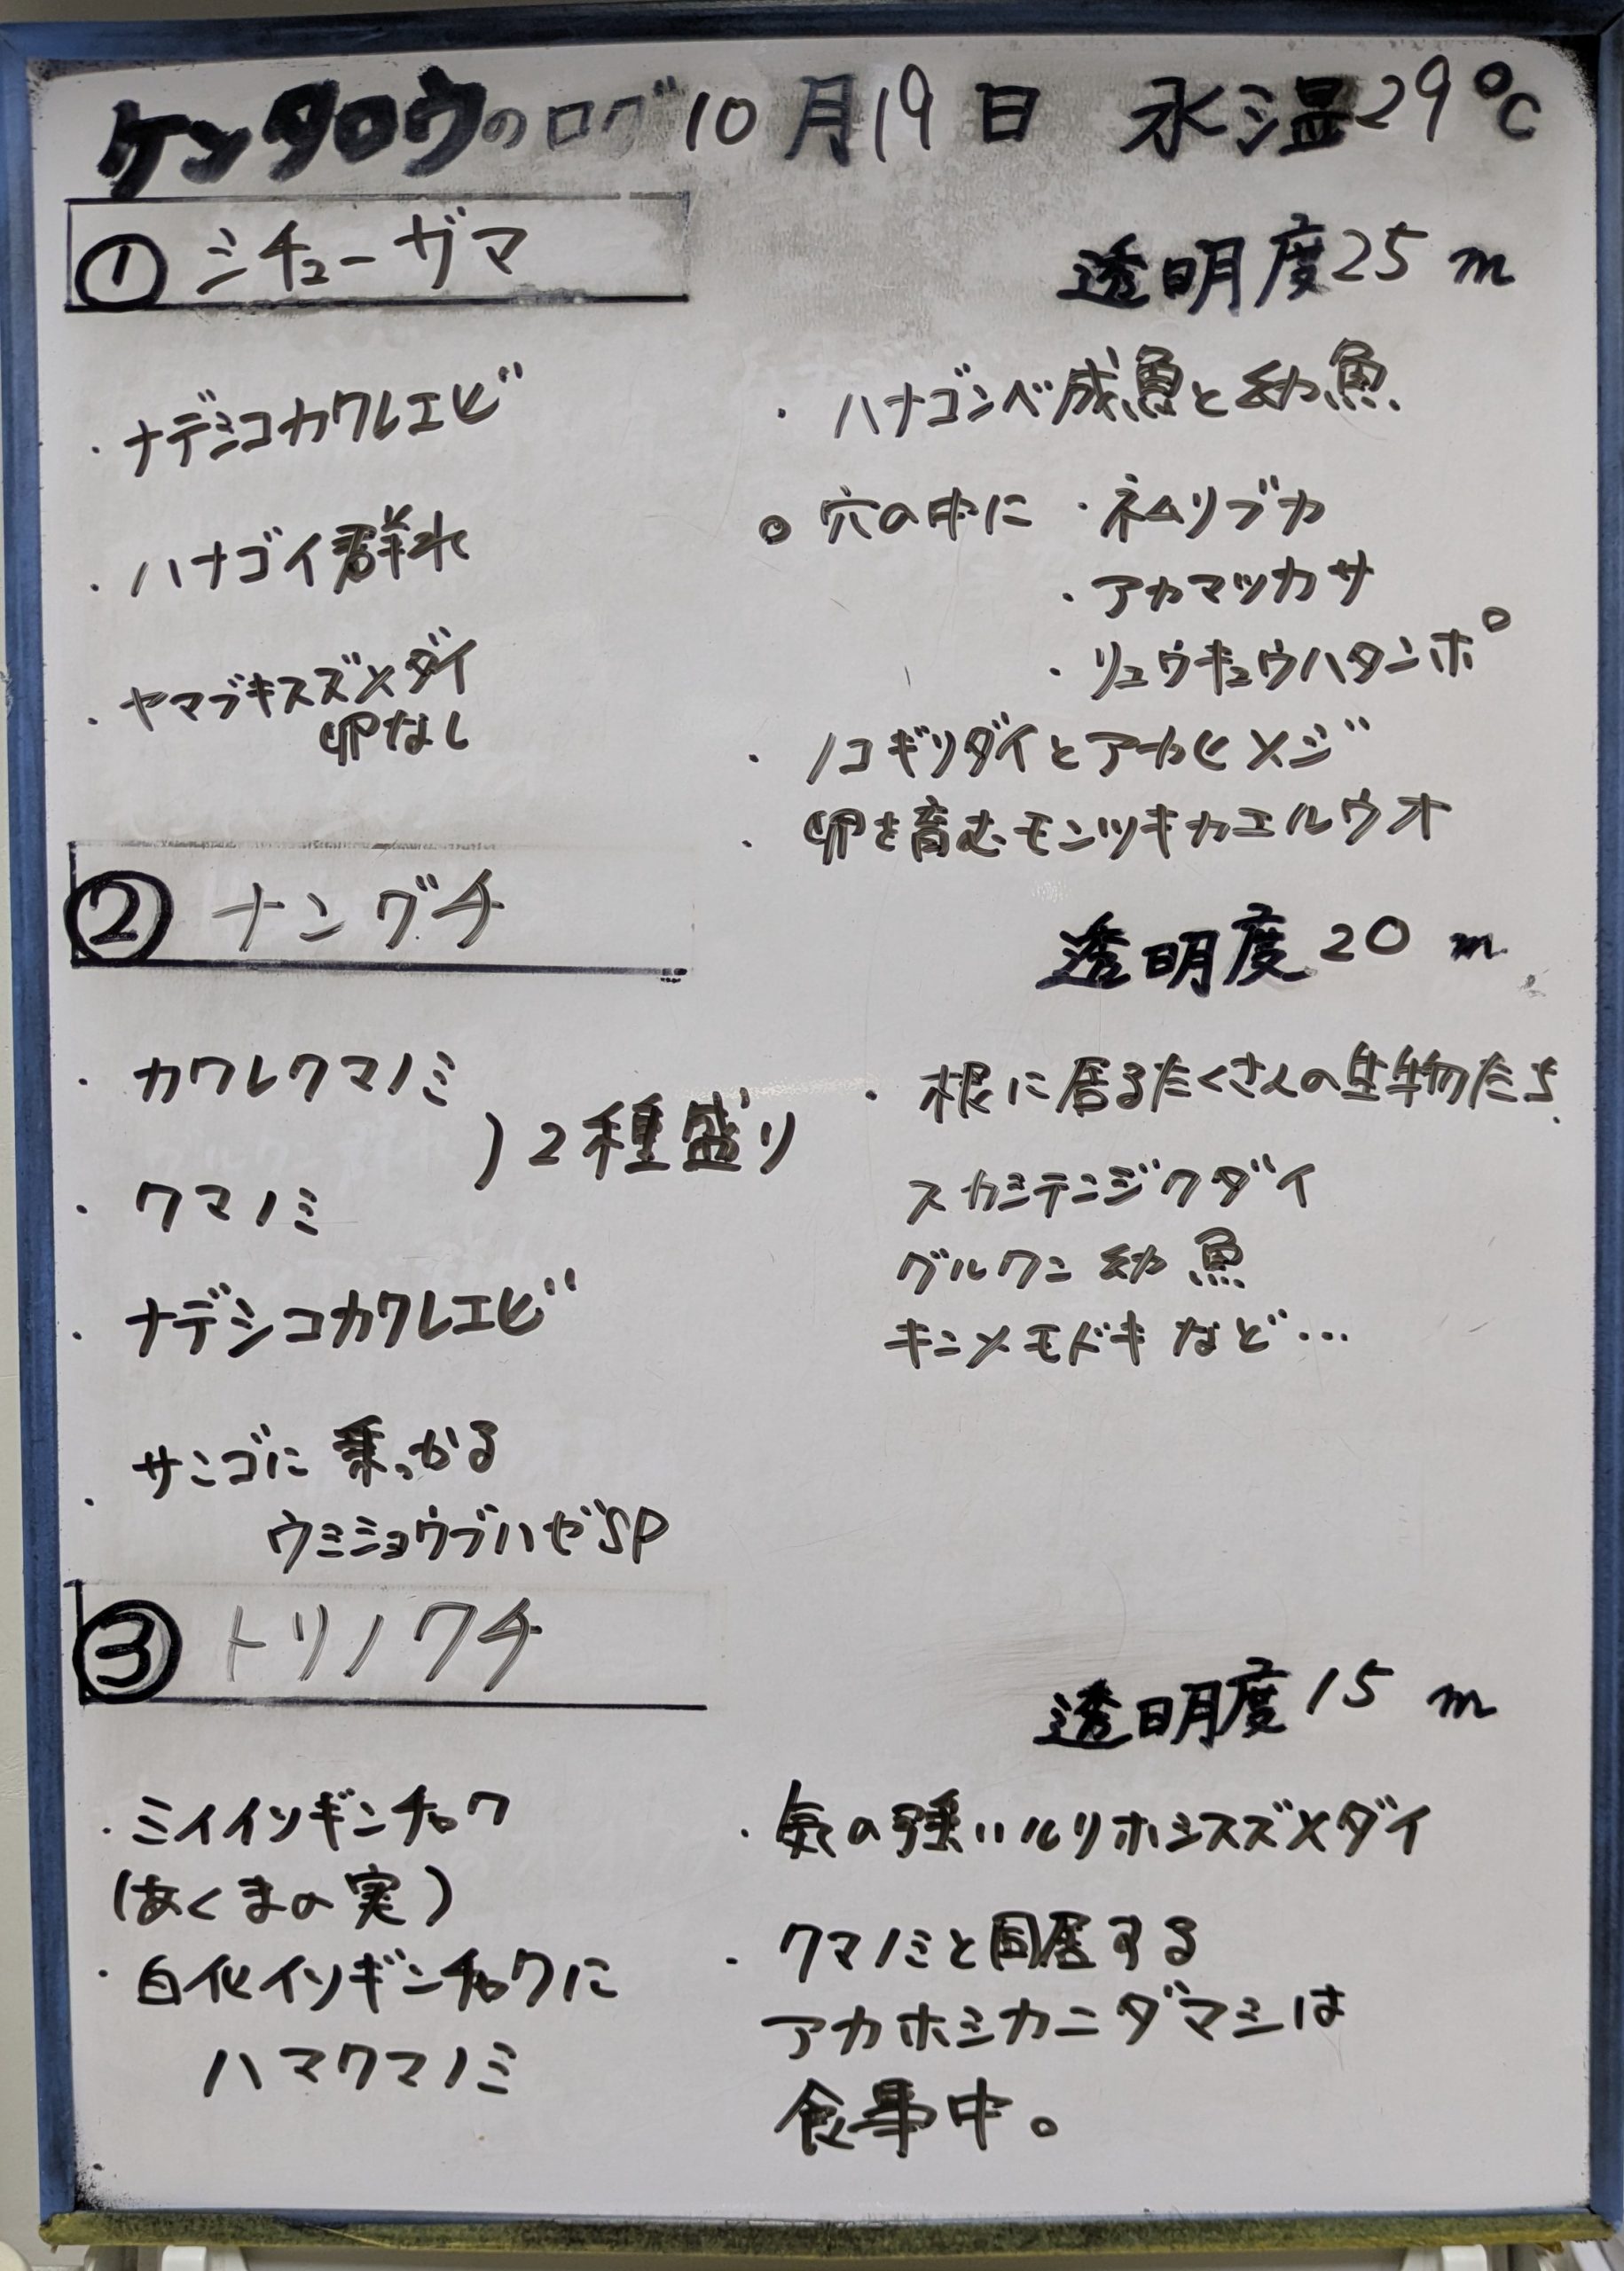 ケンタロウのログ 10月19日 水温29℃
① シチューガマ
透明度25m
・ナデシコカクレエビ
・ハナゴイ群れ
・ヤマブキスズメダイ
卵なし
・ハナゴンベ成魚と幼魚
○ 穴の中に ・ネムリブカ
・アカマツカサ
・リュウキュウハタンポ
・ノコギリダイとアカヒメジ
・卵を育むモンツキカエルウオ
② ナングチ
透明度20m
・カクレクマノミ
)2種盛り
・クマノミ
・ナデシコカクレエビ
・サンゴに乗っかる
ウミショウブハゼSP
・根に居るたくさんの生物たち
スカシテンジクダイ
グルクン幼魚
キンメモドキなど…
③ トリノクチ
透明度15m
・ミイイソギンチャク
(あくまの実)
・白化イソギンチャクに
ハマクマノミ
・気の強いルリホシスズメダイ
・クマノミと同居する
アカホシカニダマシは
食事中。